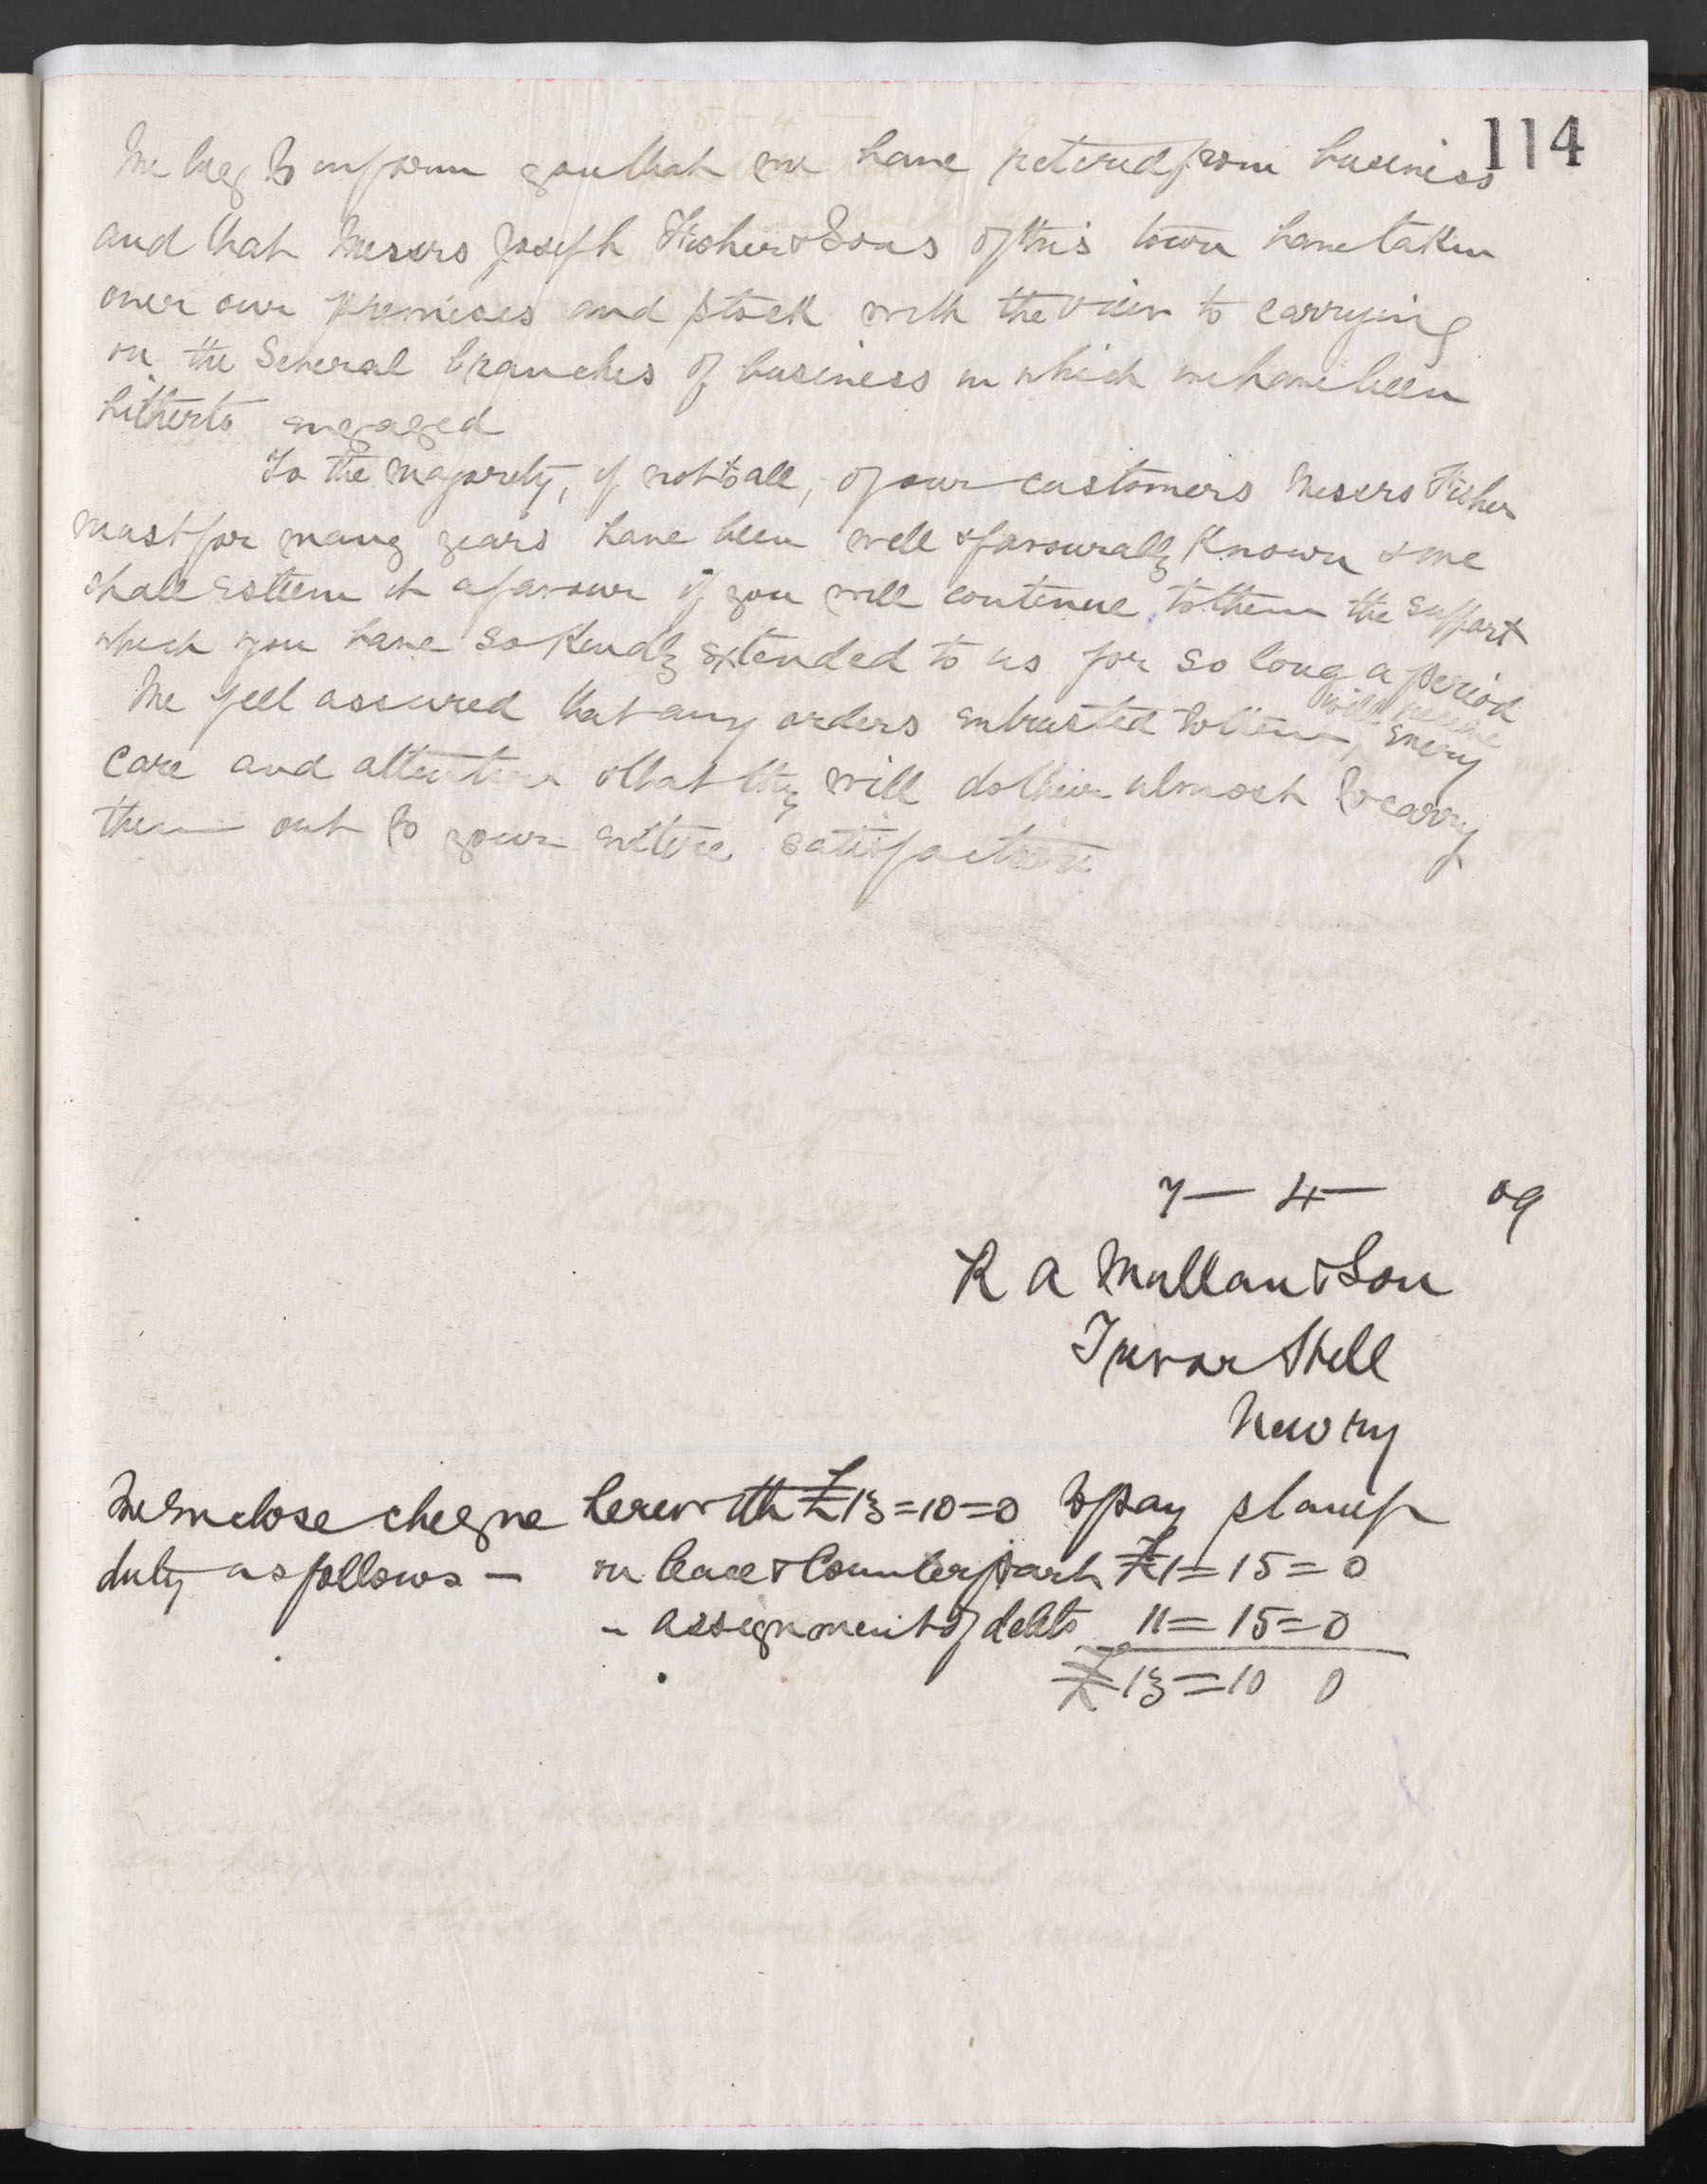 114
We beg to inform you that we have retired from business
and that Messrs Joseph Fisher & Sons of this town have taken
over our premises and stock with the view to carrying
on the several branches of business in which we have been
hitherto engaged
To the majority, if not to all, of our customers Messrs Fisher
must for many years have been well & favourably known & we
shall esteem it a favour if you will continue to them the support
which you have so kindly extended to us for so long a period
We feel assured that any orders entrusted to them, will receive every
care and attention & that they will do their utmost to carry
them out to your entire satisfaction
7 — 4 — 09
R A Mullan & Son
Trevor Hill
Newry
We enclose cheque herewith £13=10=0 to pay stamp
duty as follows — on lease & Counterpart £1=15=0
" assignment of debts 11=15=0
£13=10 0